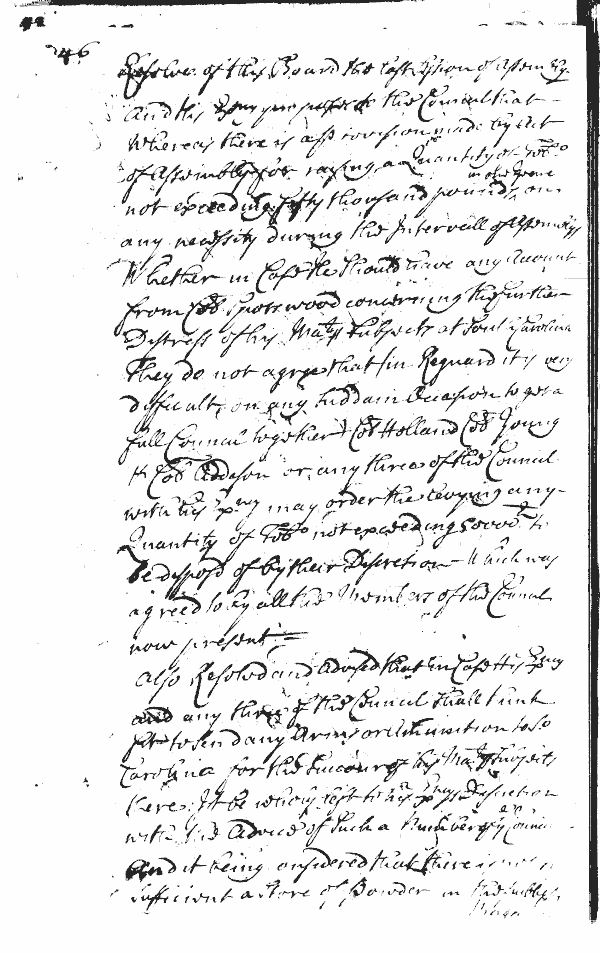 42
246
Resolve of this Board the last Session of Assembly
And His Exncy proposes to the Council that
Whereas there is a Provision made by Act
of Assembly for raising a Quantity of Tobo
in one Year
not exceeding fifty thousand pounds on
any necessity during the Intervall of Assemblys
Whether in Case He Should have any Account
from Col Spotswood concerning the Further
Distress of his Matys Subjects at South Carolina
They do not agree that (in Reguard it is very
difficult on any Suddain Occasion to get a
full Council together) Col Holland Col Young
& Col Addison or any three of the Council
with his Exncy may order the levying any
Quantity of Tobo not exceeding 50000 to
be disposd of by their Discretion Which was
agreed to by all the Members of the Council
now present
Also Resolvd and Advised that in Case His Exncy
and any three of the Council Shall think
fit to send any Arms or Amunition to So
Carolina for the Succour of his Matys Subjects
there It be wholy left to his Exncys Discretion
with the Advice of Such a Number of ye Council
And it being considered that there is not
sufficient a Store of Powder in the Publick